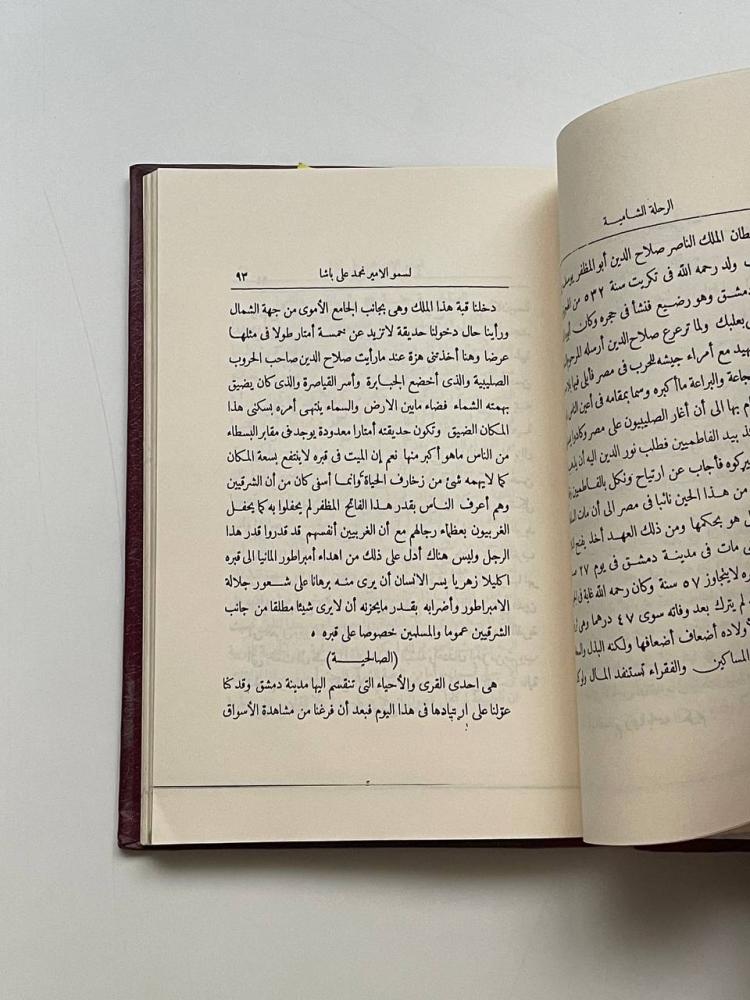 الرحلة الشامية
الملك الناصر صلاح الدين أبو المظفر
ولد رحمه الله فى تكريت سنة ٥٣٢ من
دمشق وهو رضيع فنشأ فى حجره وكان
بعلبك ولما ترعرع صلاح الدين أرسله
مع أمراء جيشه للحرب فى مصر فأبلى فيها
والبراعة ما أكبره وسما بمقامه فى أعين الناس
بها الى أن أغار الصليبيون على مصر وكادوا
بيد الفاطميين فطلب نور الدين اليه أن
فأجاب عن ارتياح ونكل بالفاطمين
من هذا الحين نائبا فى مصر الى أن مات
هو بحكمها ومن ذلك العهد أخذ يفتح
مات فى مدينة دمشق فى يوم ٢٧
لا يتجاوز ٥٧ سنة وكان رحمه الله غاية فى
لم يترك بعد وفاته سوى ٤٧ درهما
أضعاف أضعافها ولكنه البذل
المساكين والفقراء تستنفد المال
لسمو الامير محمد على باشا ٩٣
دخلنا قبة هذا الملك وهى بجانب الجامع الأموى من جهة الشمال
ورأينا حال دخولنا حديقة لا تزيد عن خمسة أمتار طولا فى مثلها
عرضا وهنا أخذتنى هزة عند ما رأيت صلاح الدين صاحب الحروب
الصليبية والذى أخضع الجبابرة وأسر القياصرة والذى كان يضيق
بهمته الشماء فضاء ما بين الارض والسماء ينتهى أمره بسكنى هذا
المكان الضيق وتكون حديقته أمتارا معدودة يوجد فى مقابر البسطاء
من الناس ما هو أكبر منها نعم إن الميت فى قبره لا ينتفع بسعة المكان
كما لا يهمه شئ من زخارف الحياة وانما أسفى كان من أن الشرقيين
وهم أعرف الناس بقدر هذا الفاتح المظفر لم يحفلوا به كما يحفل
الغربيون بعظماء رجالهم مع أن الغربيين أنفسهم قد قدروا قدر هذا
الرجل وليس هناك أدل على ذلك من اهداء أمبراطور المانيا الى قبره
اكليلا زهريا يسر الانسان أن يرى منه برهانا على شعور جلالة
الامبراطور وأضرابه بقدر ما يحزنه أن لا يرى شيئا مطلقا من جانب
الشرقيين عموما والمسلمين خصوصا على قبره .
(الصالحية)
هى احدى القرى والأحياء التى تنقسم اليها مدينة دمشق وقد كنا
عولنا على ارتيادها فى هذا اليوم فبعد أن فرغنا من مشاهدة الأسواق